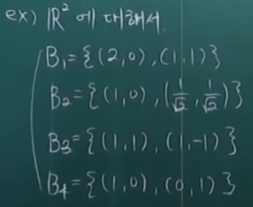 ex) ℝ² 에 대해서
B₁={(2,0),(1,1)}
B₂={(1,0),(1/√2,1/√2)}
B₃={(1,1),(1,-1)}
B₄={(1,0),(0,1)}